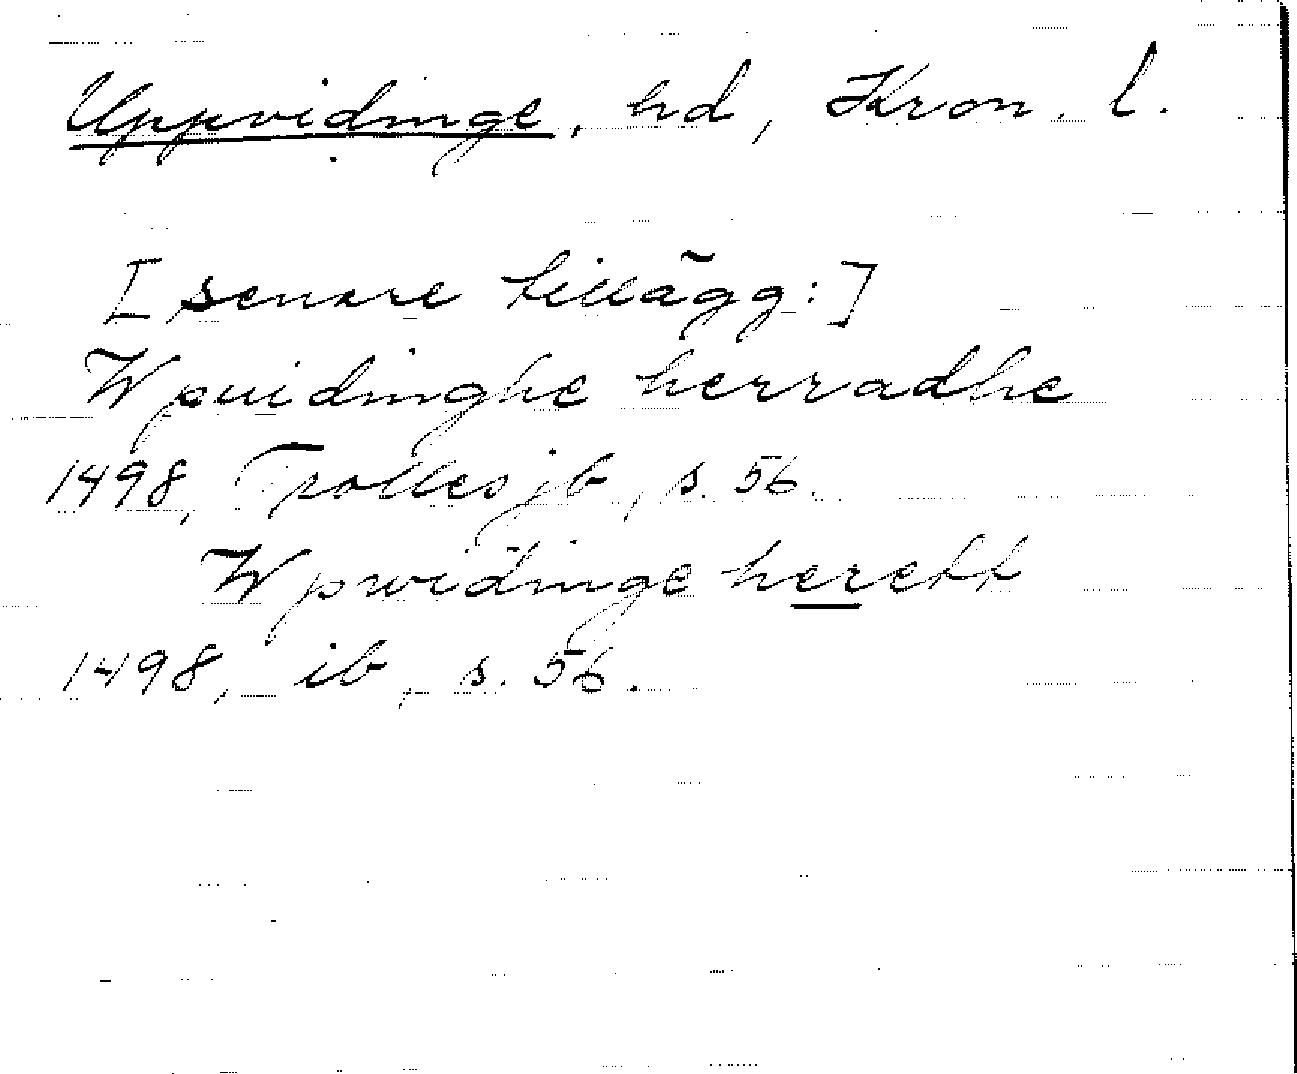 Uppvidinge, hd, Kron. l.
[senare tillägg:]
Wpuidinghe herradhe
1498, Trolles jb, s. 56.
Wpwidinge herett
1498, ib, s. 56.